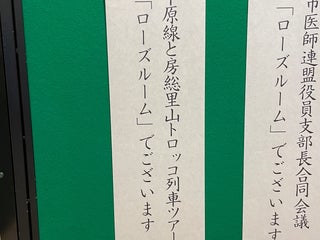 市医師連盟役員支部長合同会議
「ローズルーム」でございます
原線と房総里山トロッコ列車ツアー
「ローズルーム」でございます